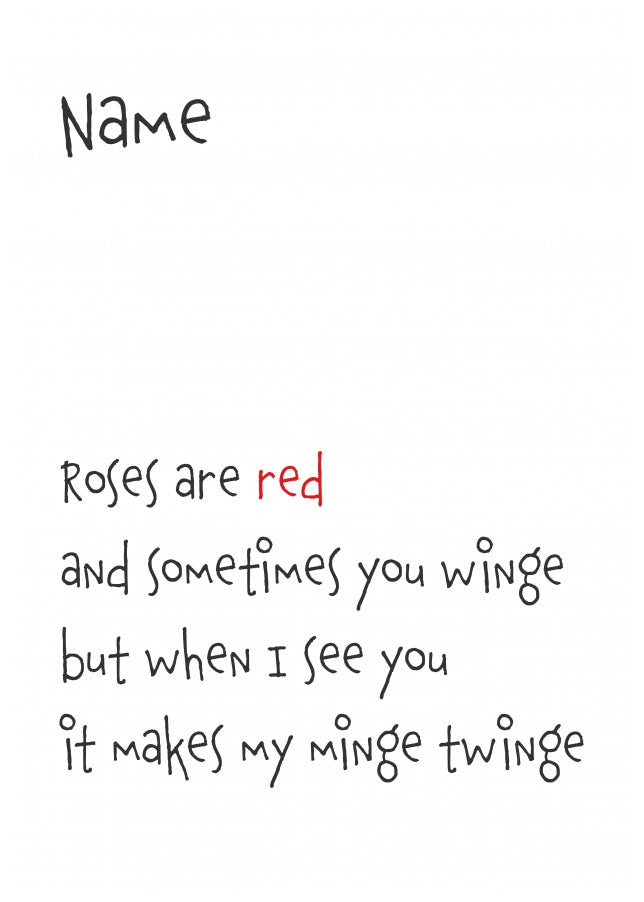 Name
Roses are red
and sometimes you winge
but when I see you
it makes my minge twinge